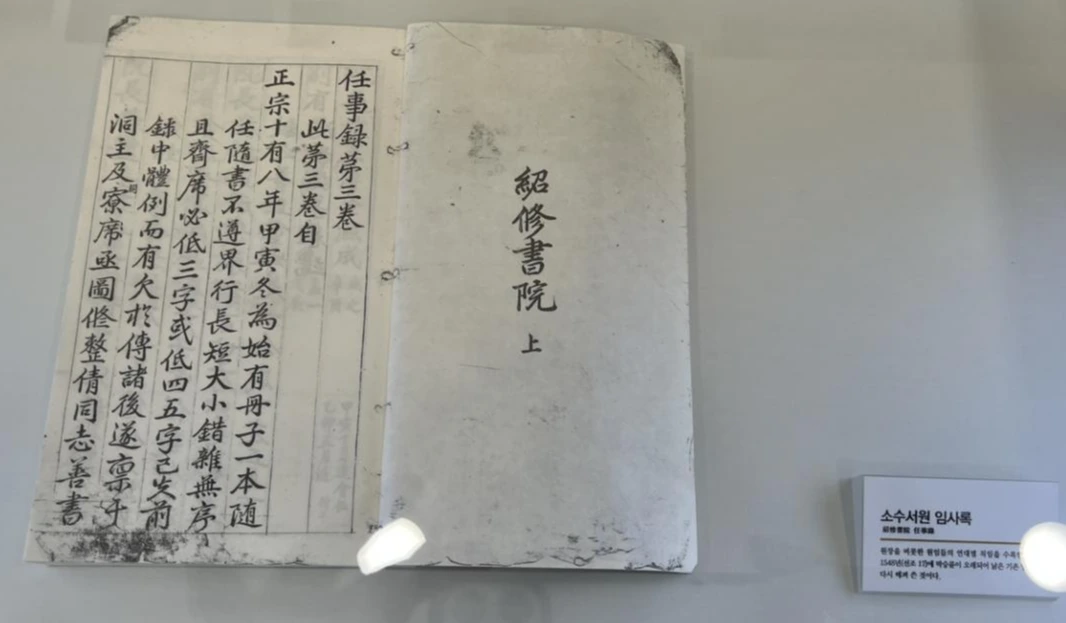 紹修書院 上
任事録苐三巻
此苐三巻自
正宗十有八年甲寅冬為始有冊子一本随
任隨書不遵界行長短大小錯雜無序
且齊席必低三字或低四五字已失前
録中體例而有欠於傳諸後遂稟于
洞主及寮席亟圖修整倩同志善書
소수서원 임사록
紹修書院 任事錄
원장을 비롯한 원임들의 연대별 직임을 수록
1548년(선조 17)에 박승윤이 오래되어 낡은 기존
다시 베껴 쓴 것이다.